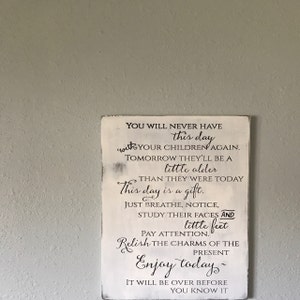 YOU WILL NEVER HAVE
this day
with YOUR CHILDREN AGAIN.
TOMORROW THEY'LL BE A
little older
THAN THEY WERE TODAY
This day is a gift.
JUST BREATHE, NOTICE,
STUDY THEIR FACES AND
little feet
PAY ATTENTION.
Relish THE CHARMS OF THE
PRESENT
Enjoy today~
IT WILL BE OVER BEFORE
YOU KNOW IT